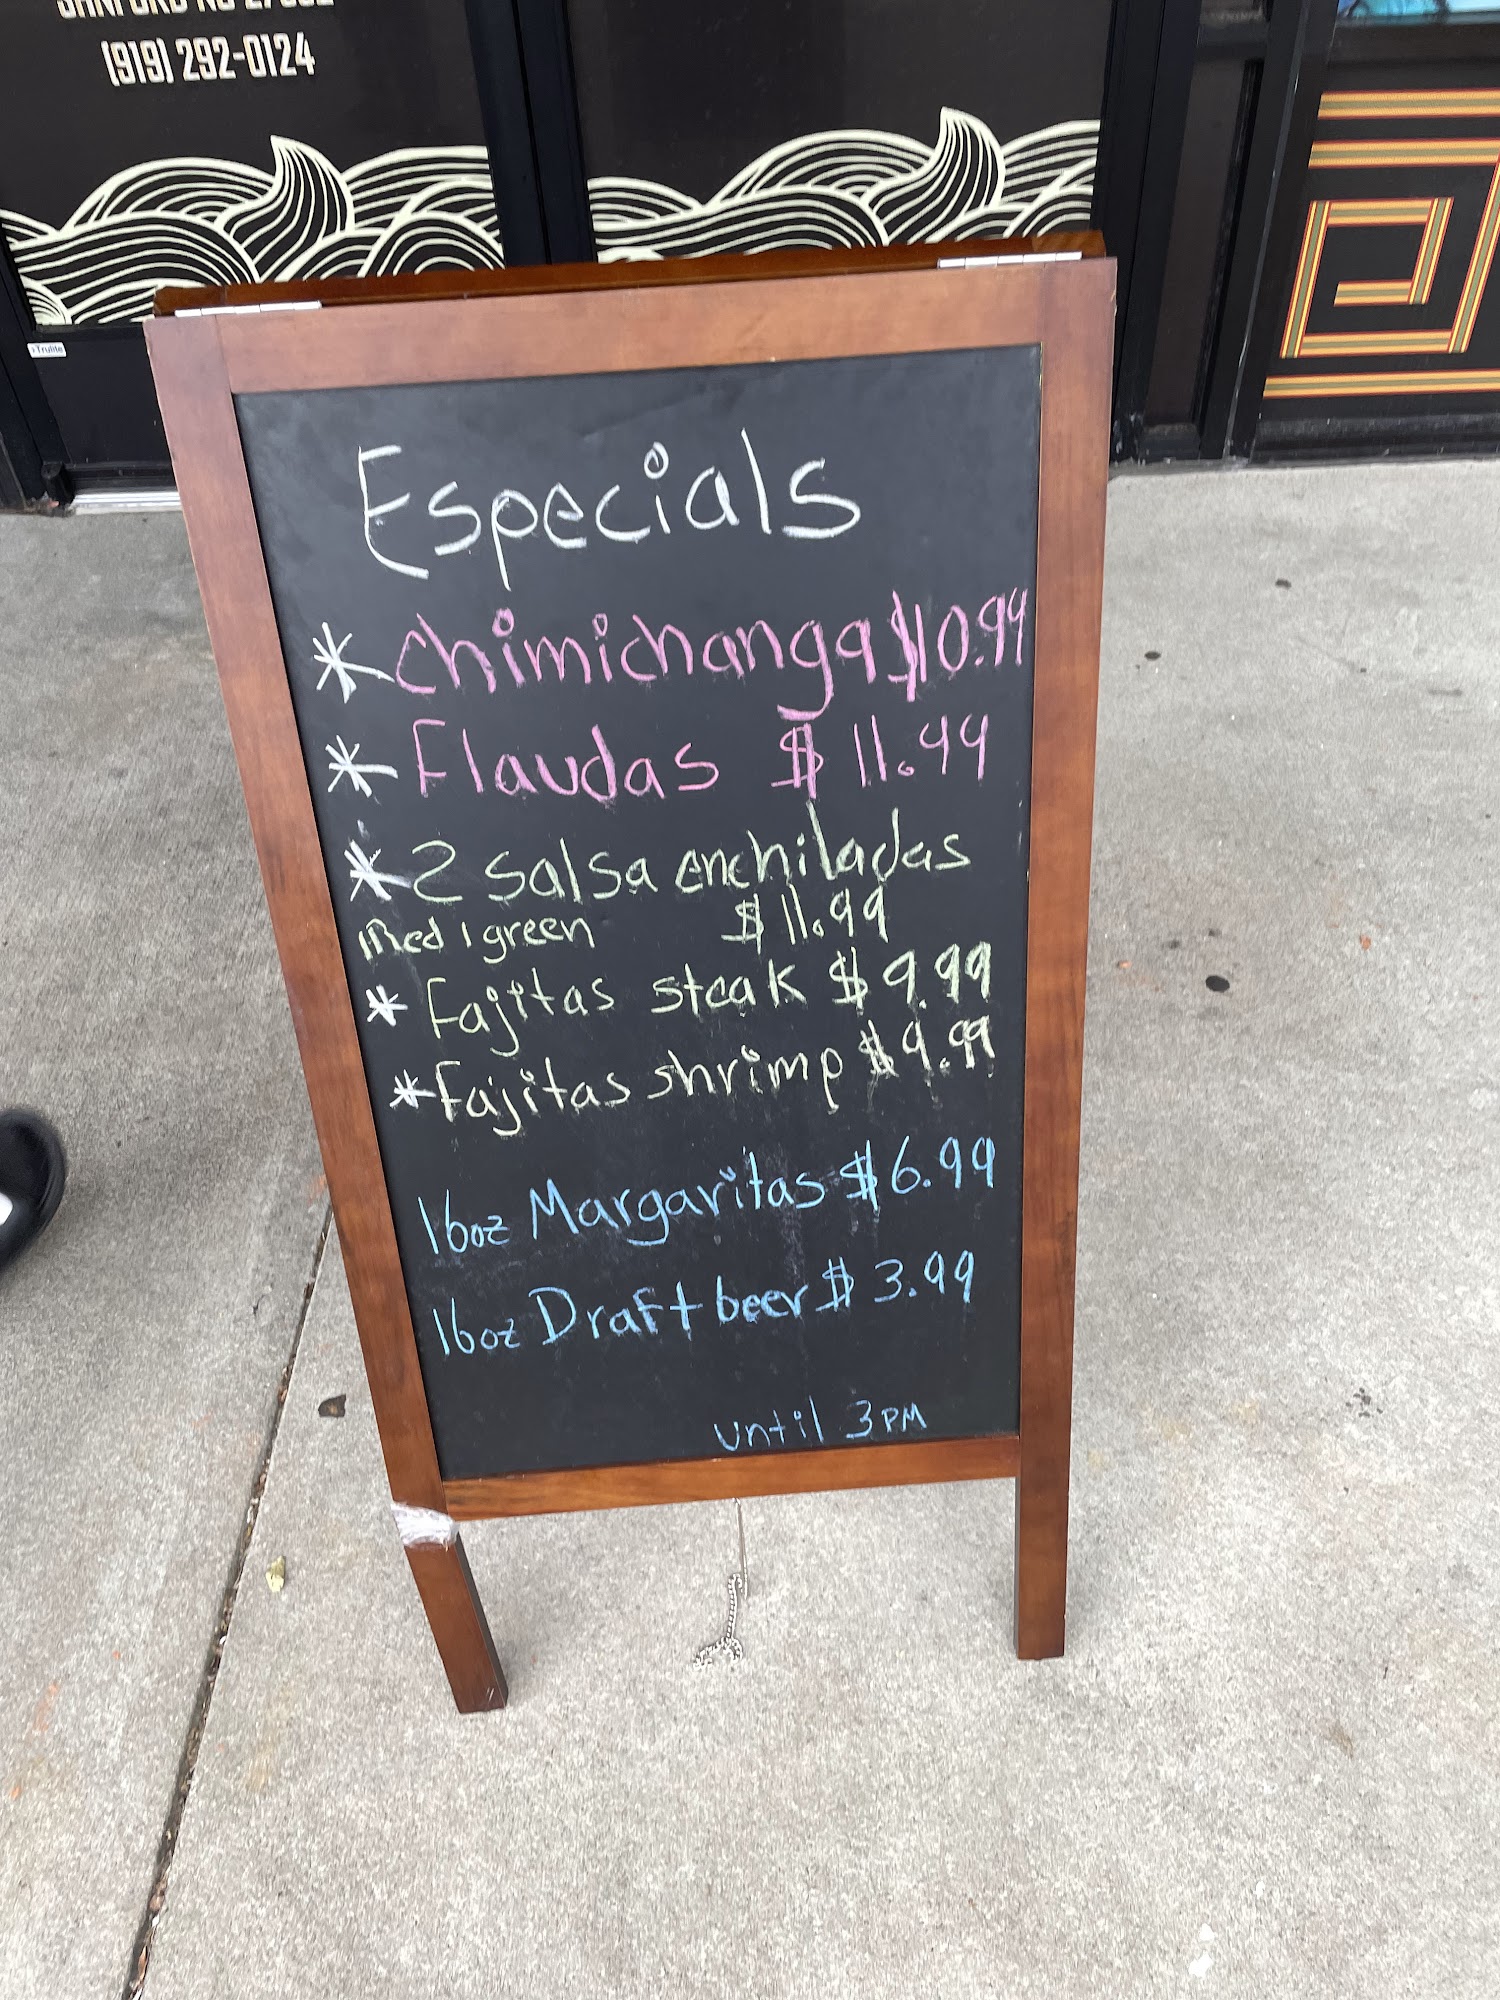 SANFORD NC
(919) 292-0124
Trulite
Especials
* Chimichanga $10.99
* Flaudas $11.99
* 2 salsa enchiladas
Red / green $11.99
* Fajitas steak $9.99
* Fajitas shrimp $9.99
16oz Margaritas $6.99
16oz Draft beer $3.99
until 3PM